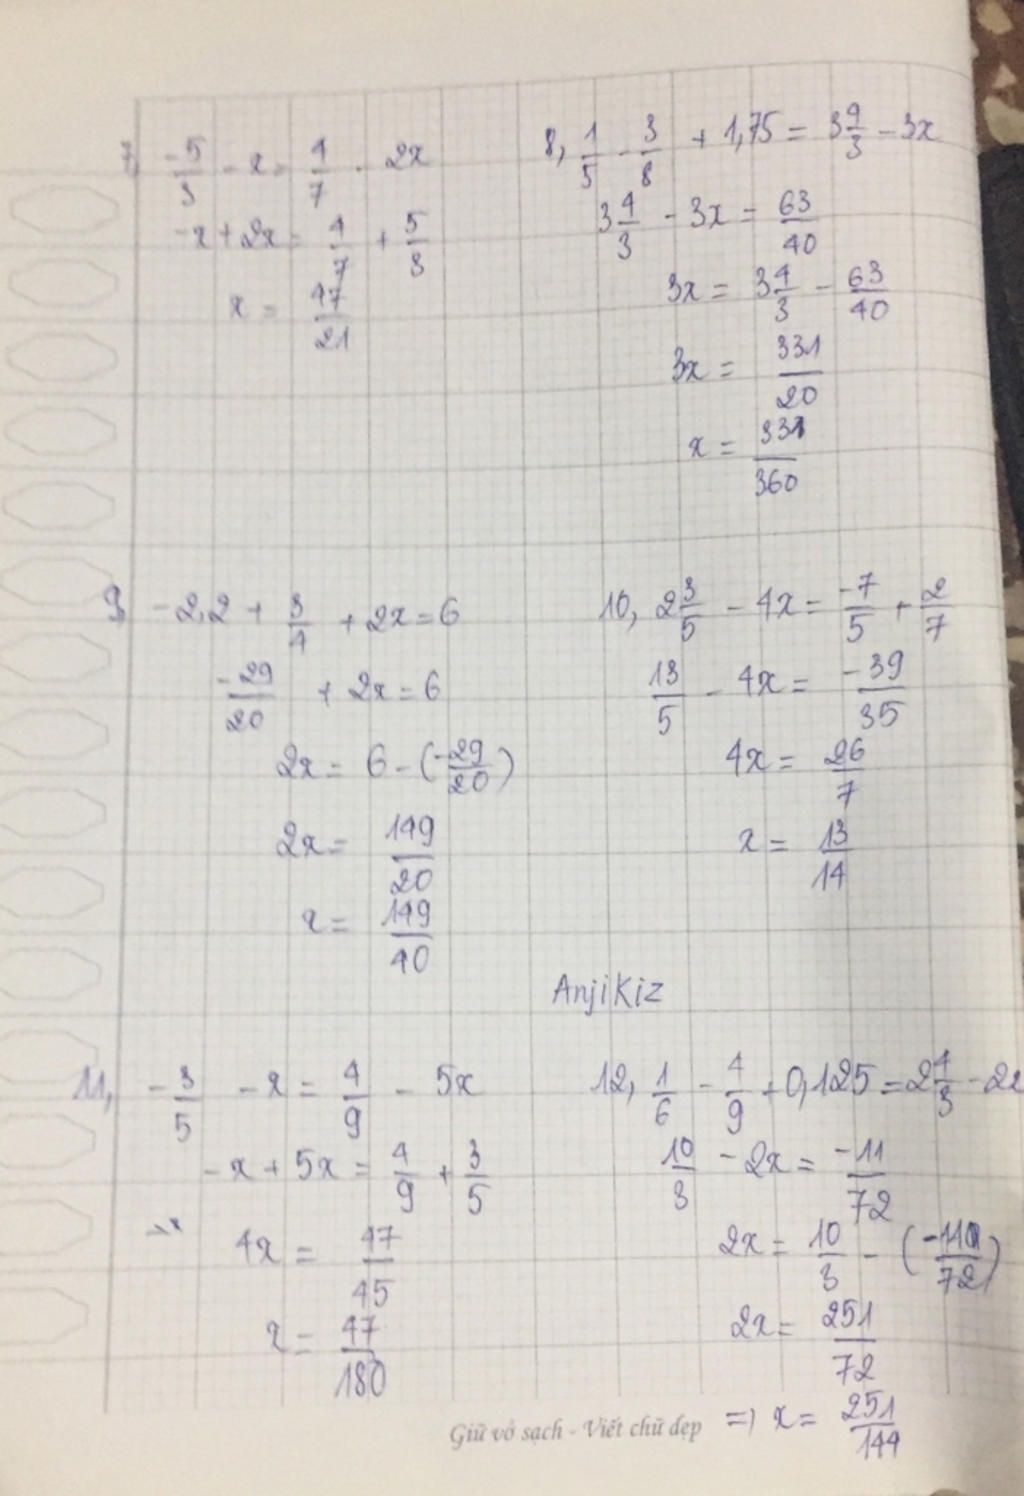 7, -5/3 - x = 4/7 - 2x
-x + 2x = 4/7 + 5/3
x = 47/21
8, 1/5 - 3/8 + 1,75 = 3 4/3 - 3x
3 4/3 - 3x = 63/40
3x = 3 4/3 - 63/40
3x = 331/20
x = 331/360
9, -2,2 + 3/4 + 2x = 6
-29/20 + 2x = 6
2x = 6 - (-29/20)
2x = 149/20
x = 149/40
10, 2 3/5 - 4x = -7/5 + 2/7
13/5 - 4x = -39/35
4x = 26/7
x = 13/14
AnjiKiz
11, -3/5 - x = 4/9 - 5x
-x + 5x = 4/9 + 3/5
4x = 47/45
x = 47/180
12, 1/6 - 4/9 + 0,125 = 2 4/3 - 2x
10/3 - 2x = -11/72
2x = 10/3 - (-11/72)
2x = 251/72
=> x = 251/144
Giữ vở sạch - Viết chữ đẹp